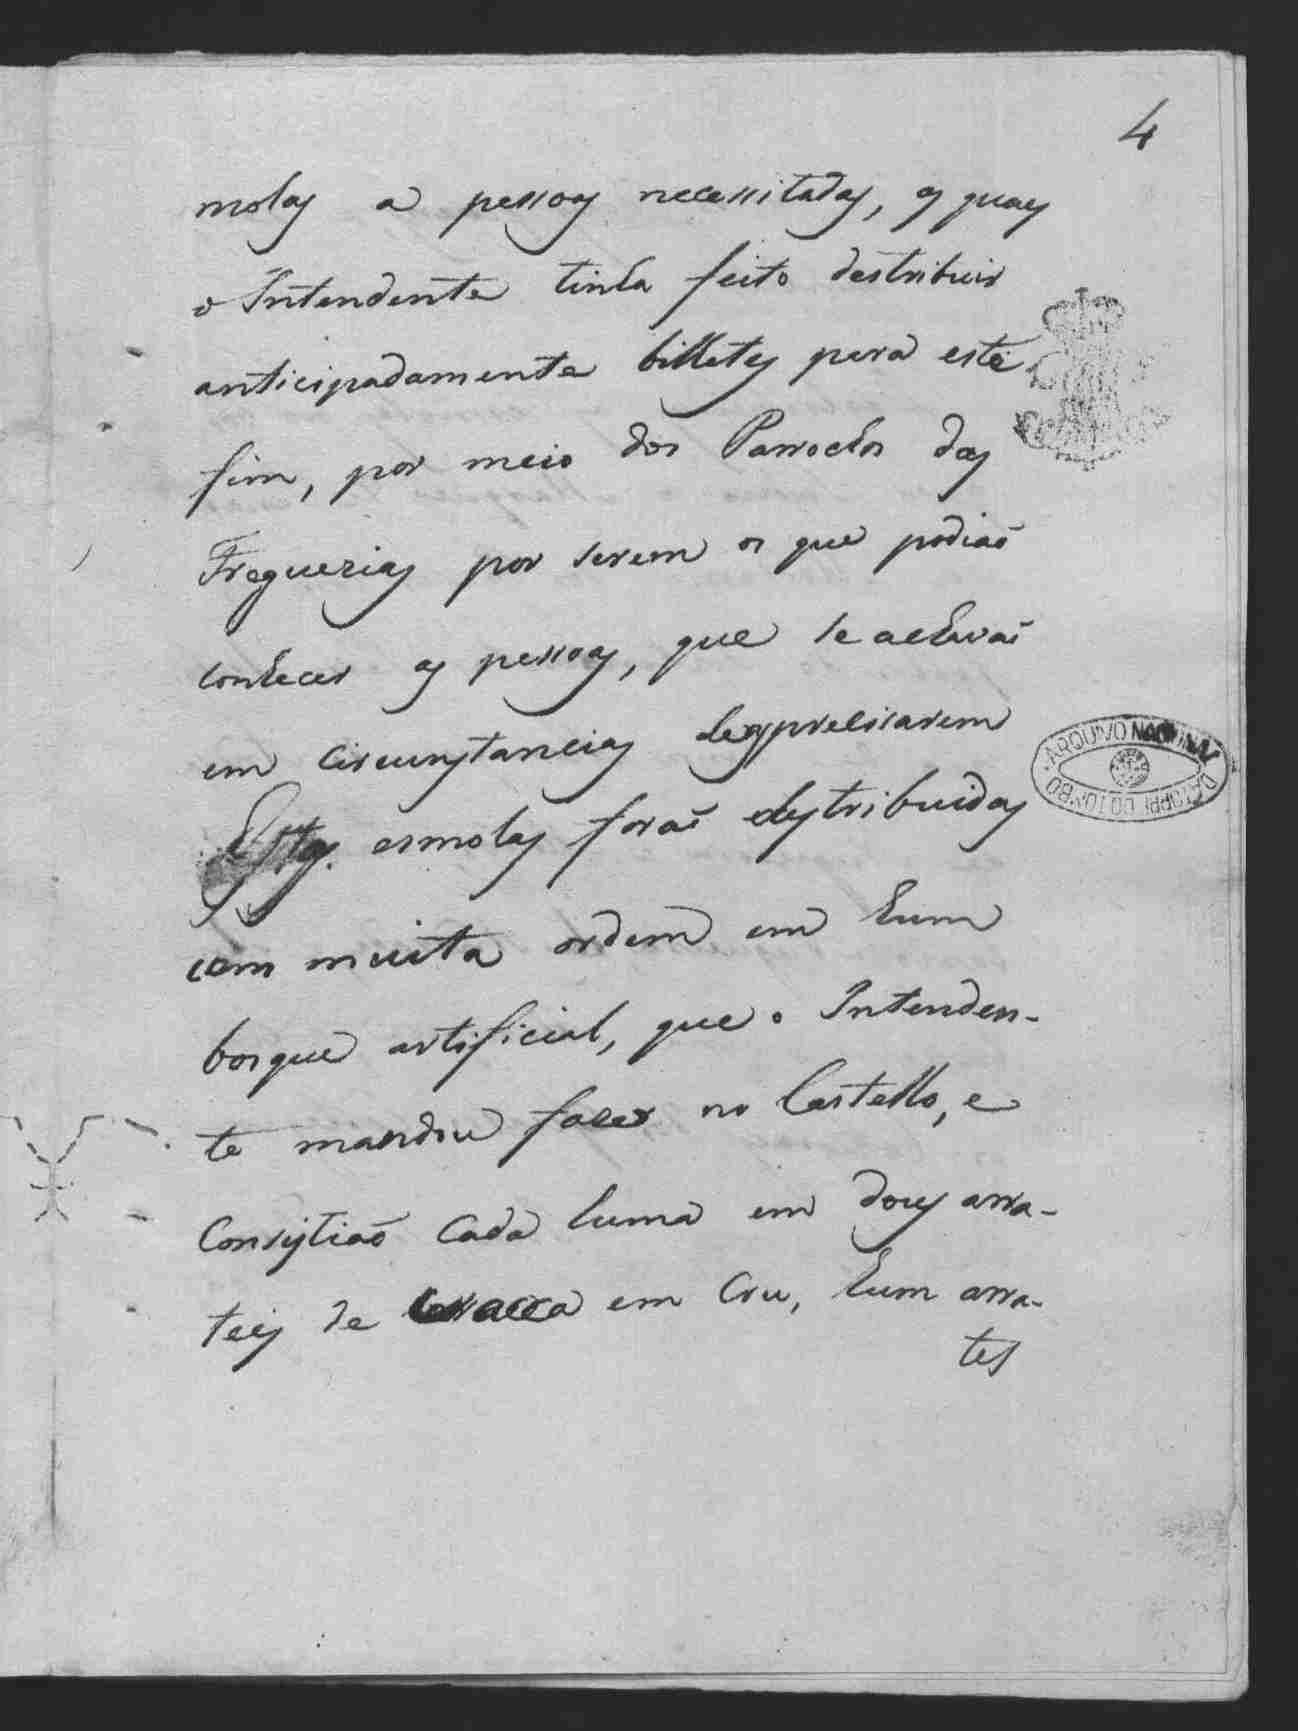 4
molas a pessoas necessitadas, as quaes
o Intendente tinha feito destribuir
anticipadamente billetes para este
fim, por meio dos Parrochos das
Freguezias por serem os que podiaõ
conhecer as pessoas, que se achavaõ
em circunstancias de as precisarem
Estas esmolas foraõ destribuidas
com muita ordem em hum
bosque artificial, que o Intenden-
te mandou fazer no Castello, e
Consistiaõ cada huma em dous arra-
teis de vacca em cru, hum arra-
tes
ARQUIVO NACIONAL DA TORRE DO TOMBO